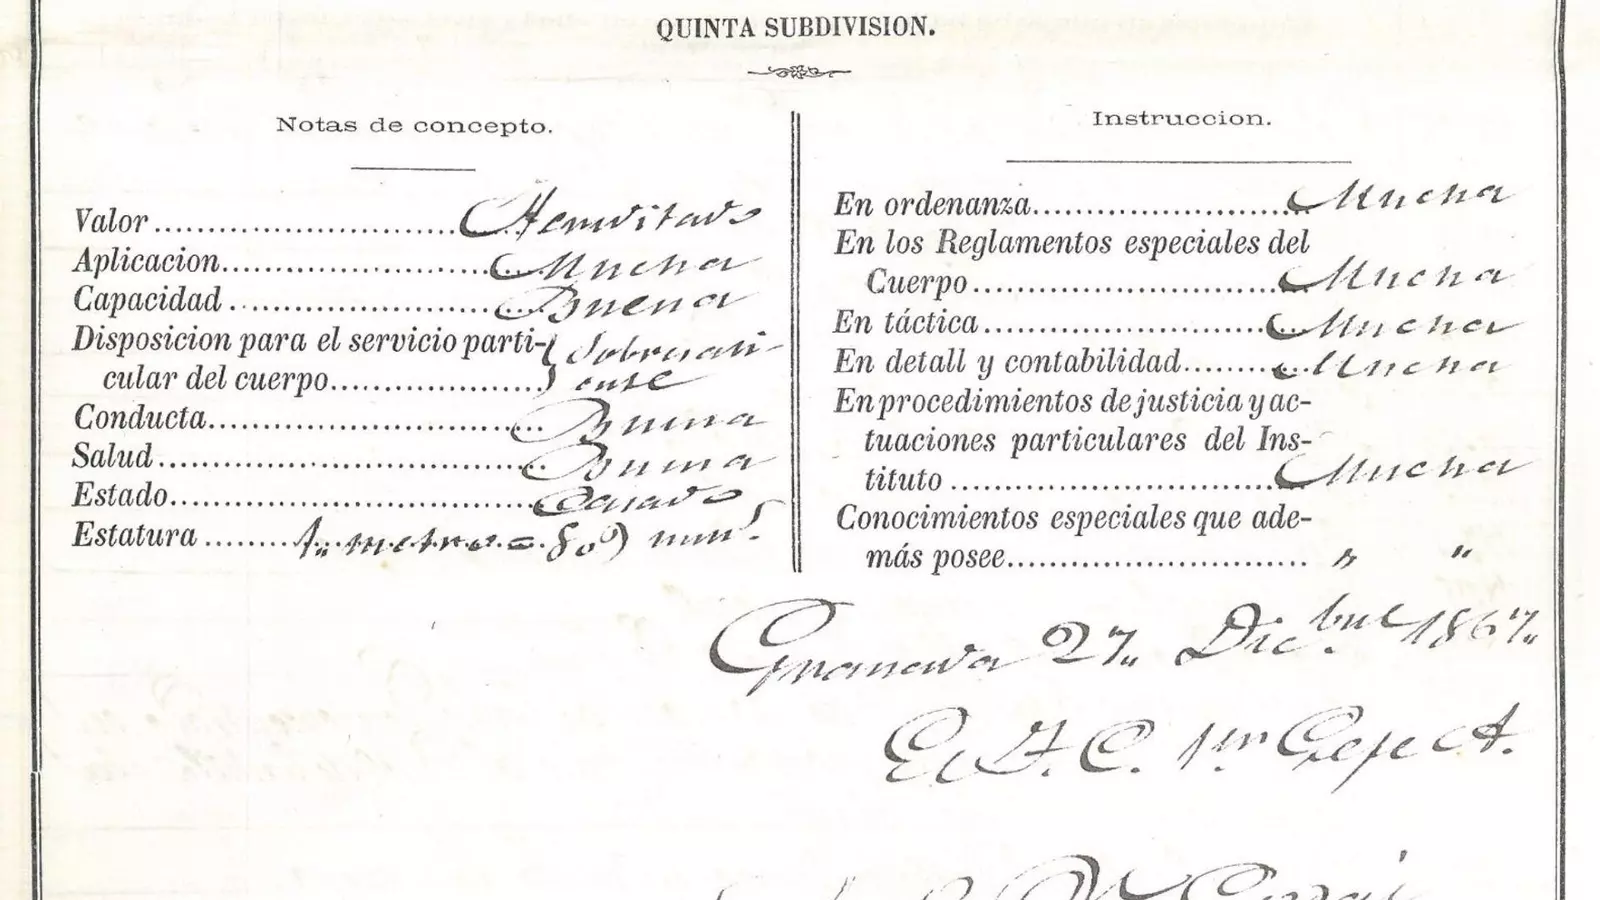 QUINTA SUBDIVISION.
Notas de concepto.
Valor.............................Acreditado
Aplicacion.............................Mucha
Capacidad.............................Buena
Disposicion para el servicio parti-
cular del cuerpo......................
Conducta.............................Buena
Salud.............................Buena
Estado.............................Casado
Estatura........1" metro = 809 mms.
Instruccion.
En ordenanza.............................Mucha
En los Reglamentos especiales del
Cuerpo.............................Mucha
En táctica.............................Mucha
En detall y contabilidad...........Mucha
En procedimientos de justicia y ac-
tuaciones particulares del Ins-
tituto.............................Mucha
Conocimientos especiales que ade-
más posee............................. " "
Granada 27" Dicbre 1867"
El T. C. 1er Gefe A.